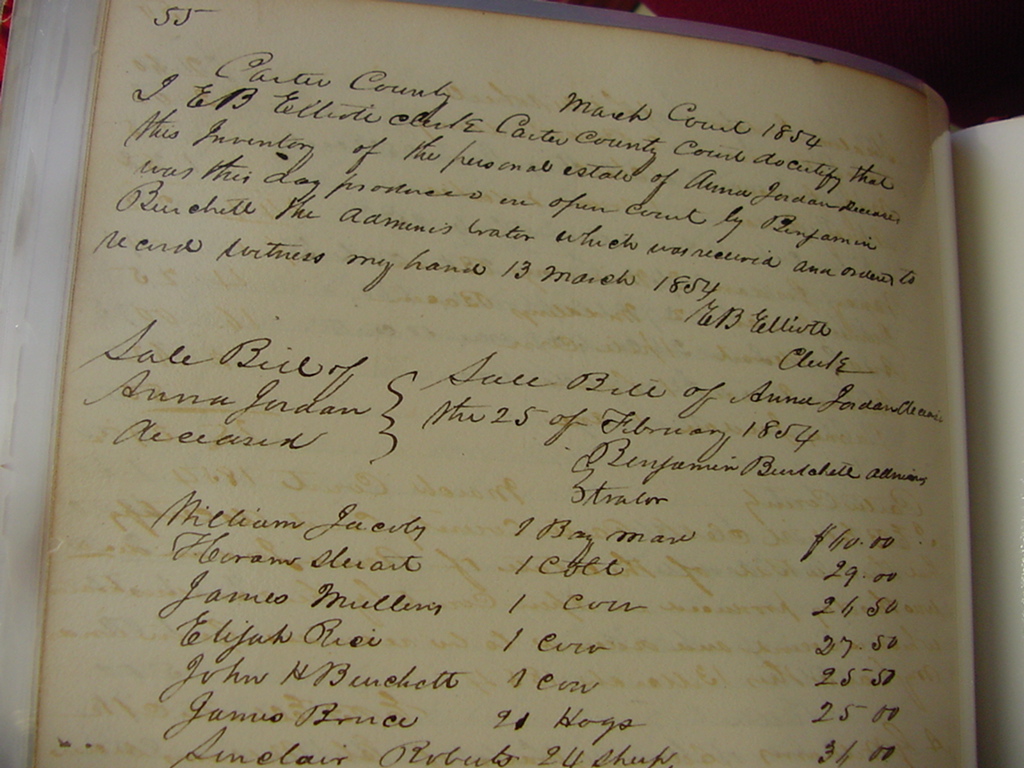 55
Carter County March Court 1854
I G B Elliott Clerk Carter County Court do certify that
this Inventory of the personal estate of Anna Jordan
was this day produced in open Court by Benjamin
Burchett the administrator which was record and order to
record witness my hand 13 March 1854
G B Elliott
Clerk
Sale Bill of
Anna Jordan
Deceased
Sale Bill of Anna Jordan
the 25 of February 1854
Benjamin Burchett
strator
William 1 Bay mare 40.00
Hiram Stuart 1 Colt 29.00
James 1 cow 24.50
Elijah Rice 1 Cow 27.50
John H Burchett 1 cow 25.50
James Bruce 21 Hogs 25.00
Sinclair Roberts 24 sheep 31.00